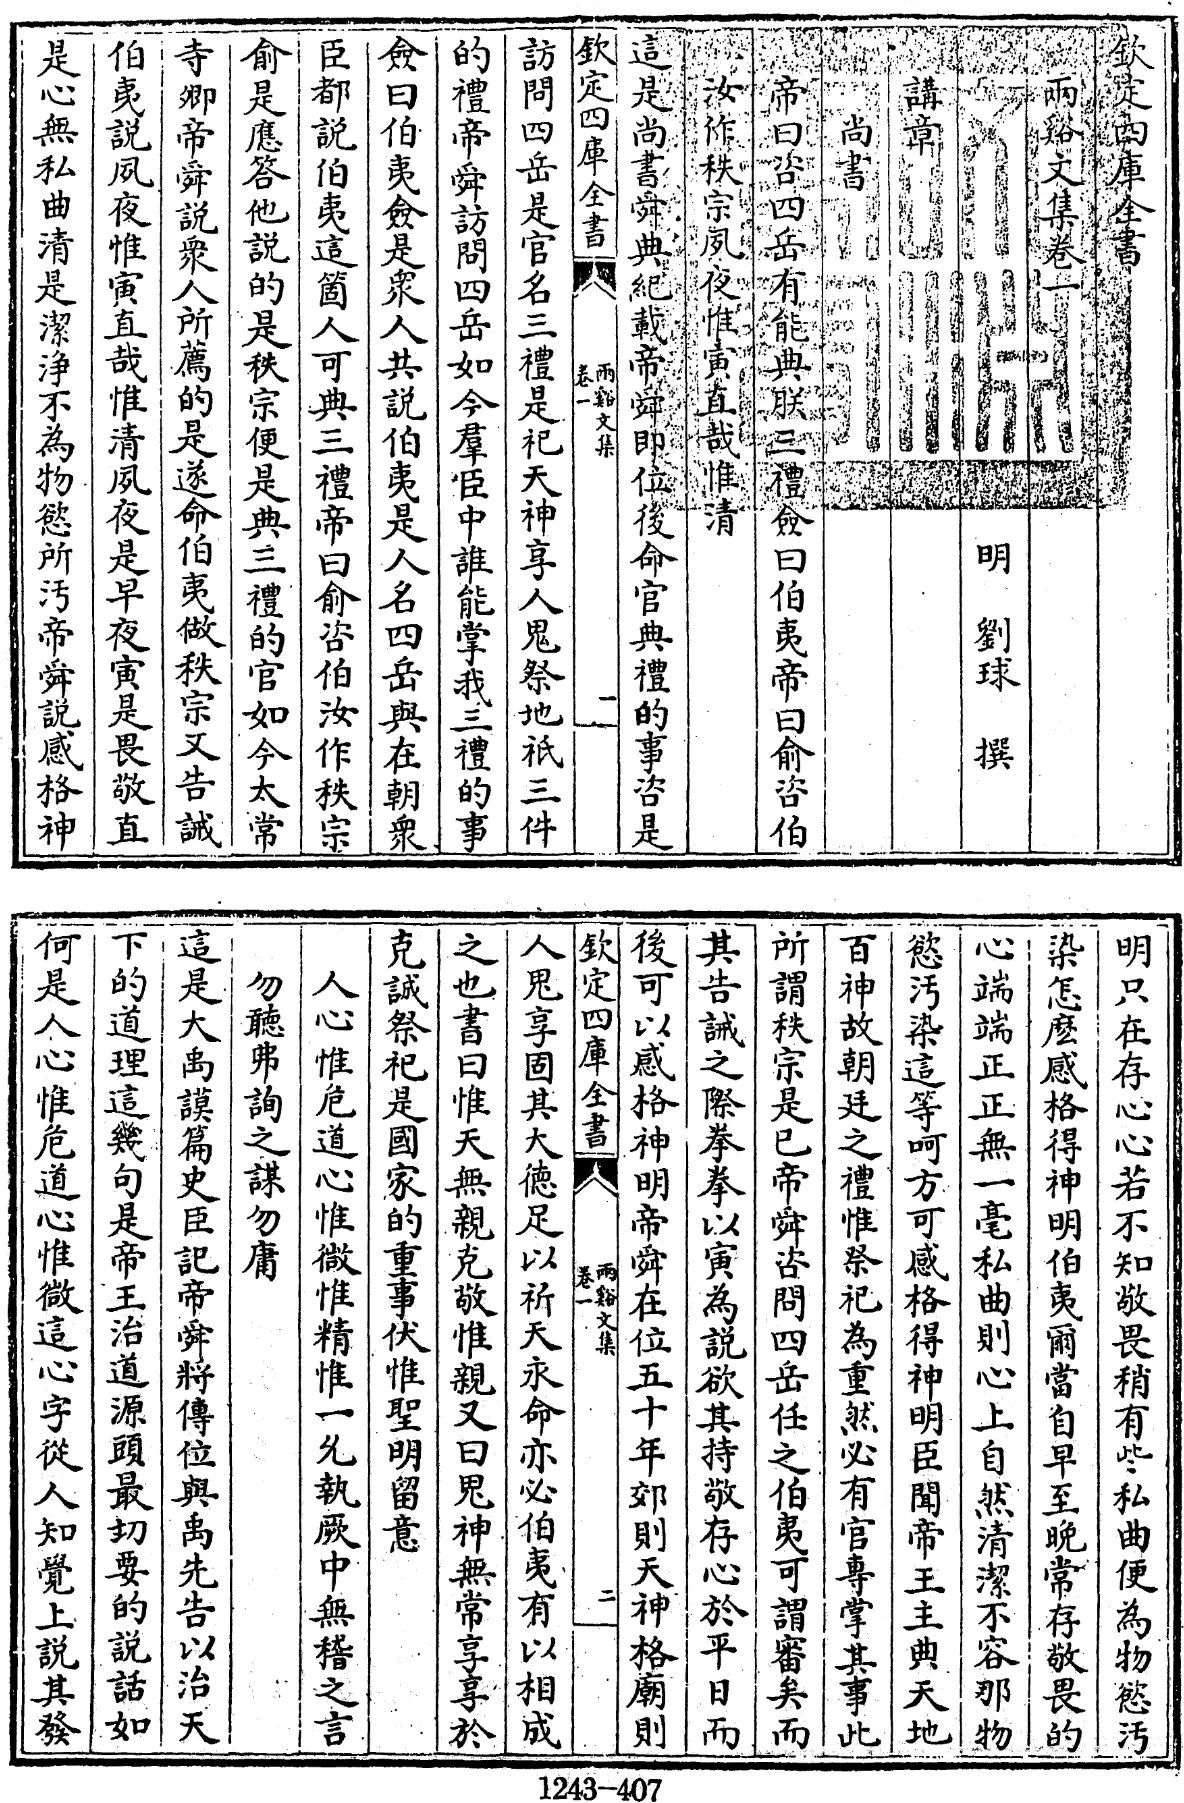 欽定四庫全書
兩谿文集卷一
明 劉球 撰
講章
尚書
帝曰咨四岳有能典朕三禮僉曰伯夷帝曰俞咨伯
汝作秩宗夙夜惟寅直哉惟清
這是尚書舜典紀載帝舜即位後命官典禮的事咨是
欽定四庫全書
兩谿文集
卷一
一
訪問四岳是官名三禮是祀天神享人鬼祭地祇三件
的禮帝舜訪問四岳如今羣臣中誰能掌我三禮的事
僉曰伯夷僉是衆人共説伯夷是人名四岳與在朝衆
臣都説伯夷這箇人可典三禮帝曰俞咨伯汝作秩宗
俞是應答他説的是秩宗便是典三禮的官如今太常
寺卿帝舜説衆人所薦的是遂命伯夷做秩宗又告誡
伯夷説夙夜惟寅直哉惟清夙夜是早夜寅是畏敬直
是心無私曲清是潔淨不為物慾所汚帝舜説感格神
明只在存心心若不知敬畏稍有些私曲便為物慾汚
染怎麽感格得神明伯夷爾當自早至晚常存敬畏的
心端端正正無一毫私曲則心上自然清潔不容那物
慾汚染這等呵方可感格得神明臣聞帝王主典天地
百神故朝廷之禮惟祭祀為重然必有官專掌其事此
所謂秩宗是已帝舜咨問四岳任之伯夷可謂審矣而
其告誡之際拳拳以寅為説欲其持敬存心於平日而
後可以感格神明帝舜在位五十年郊則天神格廟則
欽定四庫全書
兩谿文集
卷一
二
人鬼享固其大德足以祈天永命亦必伯夷有以相成
之也書曰惟天無親克敬惟親又曰鬼神無常享享於
克誠祭祀是國家的重事伏惟聖明留意
人心惟危道心惟微惟精惟一允執厥中無稽之言
勿聽弗詢之謀勿庸
這是大禹謨篇史臣記帝舜將傳位與禹先告以治天
下的道理這幾句是帝王治道源頭最切要的説話如
何是人心惟危道心惟微這心字從人知覺上説其發
1243-407